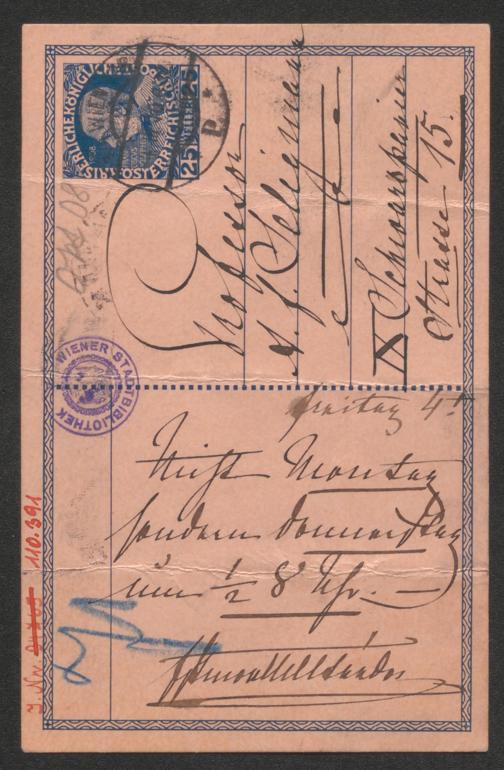 KAISERLICHEKÖNIGLICHE
ÖSTERREICHISCHE
25 HELLER 25
1908
WIEN
Professor
A. F. Seligmann
IX Schwarzspanier
Strasse 15.
WIENER STADTBIBLIOTHEK
Freitag 4t
Nicht Montag
sondern Donnerstag
um ½ 8 Uhr. —
J. Nr. 110.391